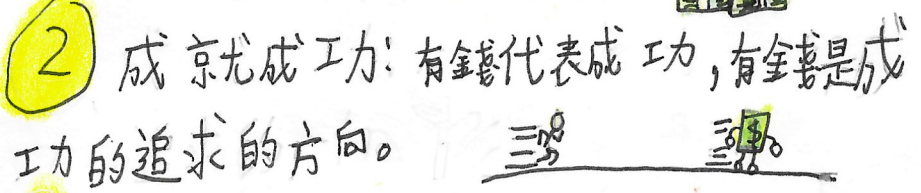 ② 成就成功：有錢代表成功，有錢是成
功的追求的方向。
$